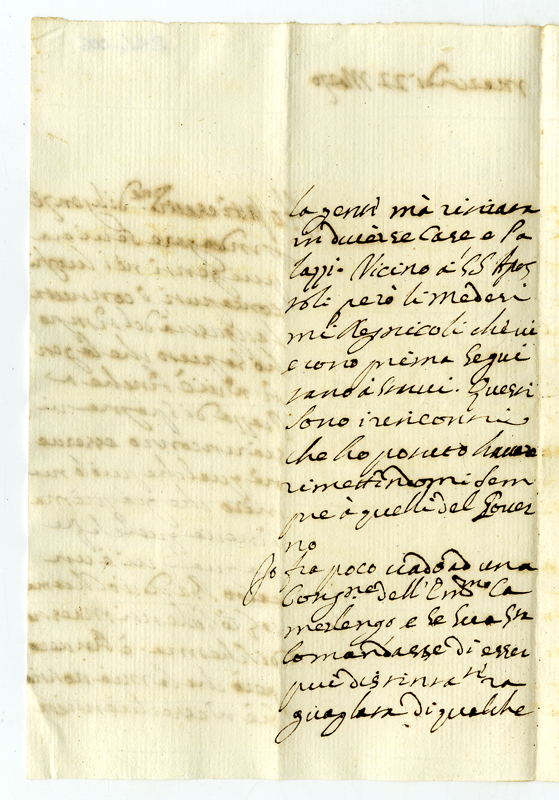 la gente mà ritirata
in diuerse Case e Pa
lazzi. Vicino à SS Apos
toli però li medesi
mi Regnicoli che ui
erono prima segui
tano à starui. Questi
sono i riscontri
che ho potuto hauere
rimettendomi sem
pre à quelli del Gouer
no
Io fra poco uado ad una
Cong.ne dell'Em.mo Ca
merlengo e se Sua Sta
Comandasse di esser
più distinta.te ra
guagliata di qualche